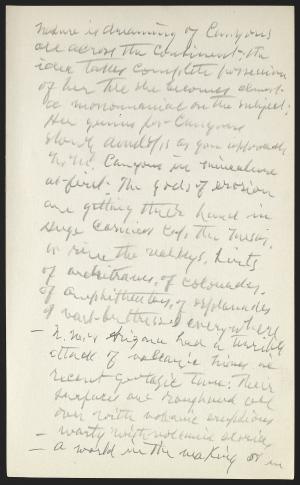 Nature is dreaming of Canyons
all across the Continent; the
idea takes complete possession
of her till she becomes almost
a monomaniac on the subject;
Her genius for Canyons
slowly develops as you approach
In the Canyons in miniature
at first: The gods of erosion
are getting their hand in
huge carnices cap the mesas,
or rim the valleys, hints
of architraves, of colonades,
of amphitheatres, of esplanades
of vast buttresses everywhere
— N.M. & Arizona had a terrible
attack of volcanic hives in
recent geologic time: Their
surfaces are roughened all
over with volcanic eruptions
— warty with volcanic
— a world in the making or in